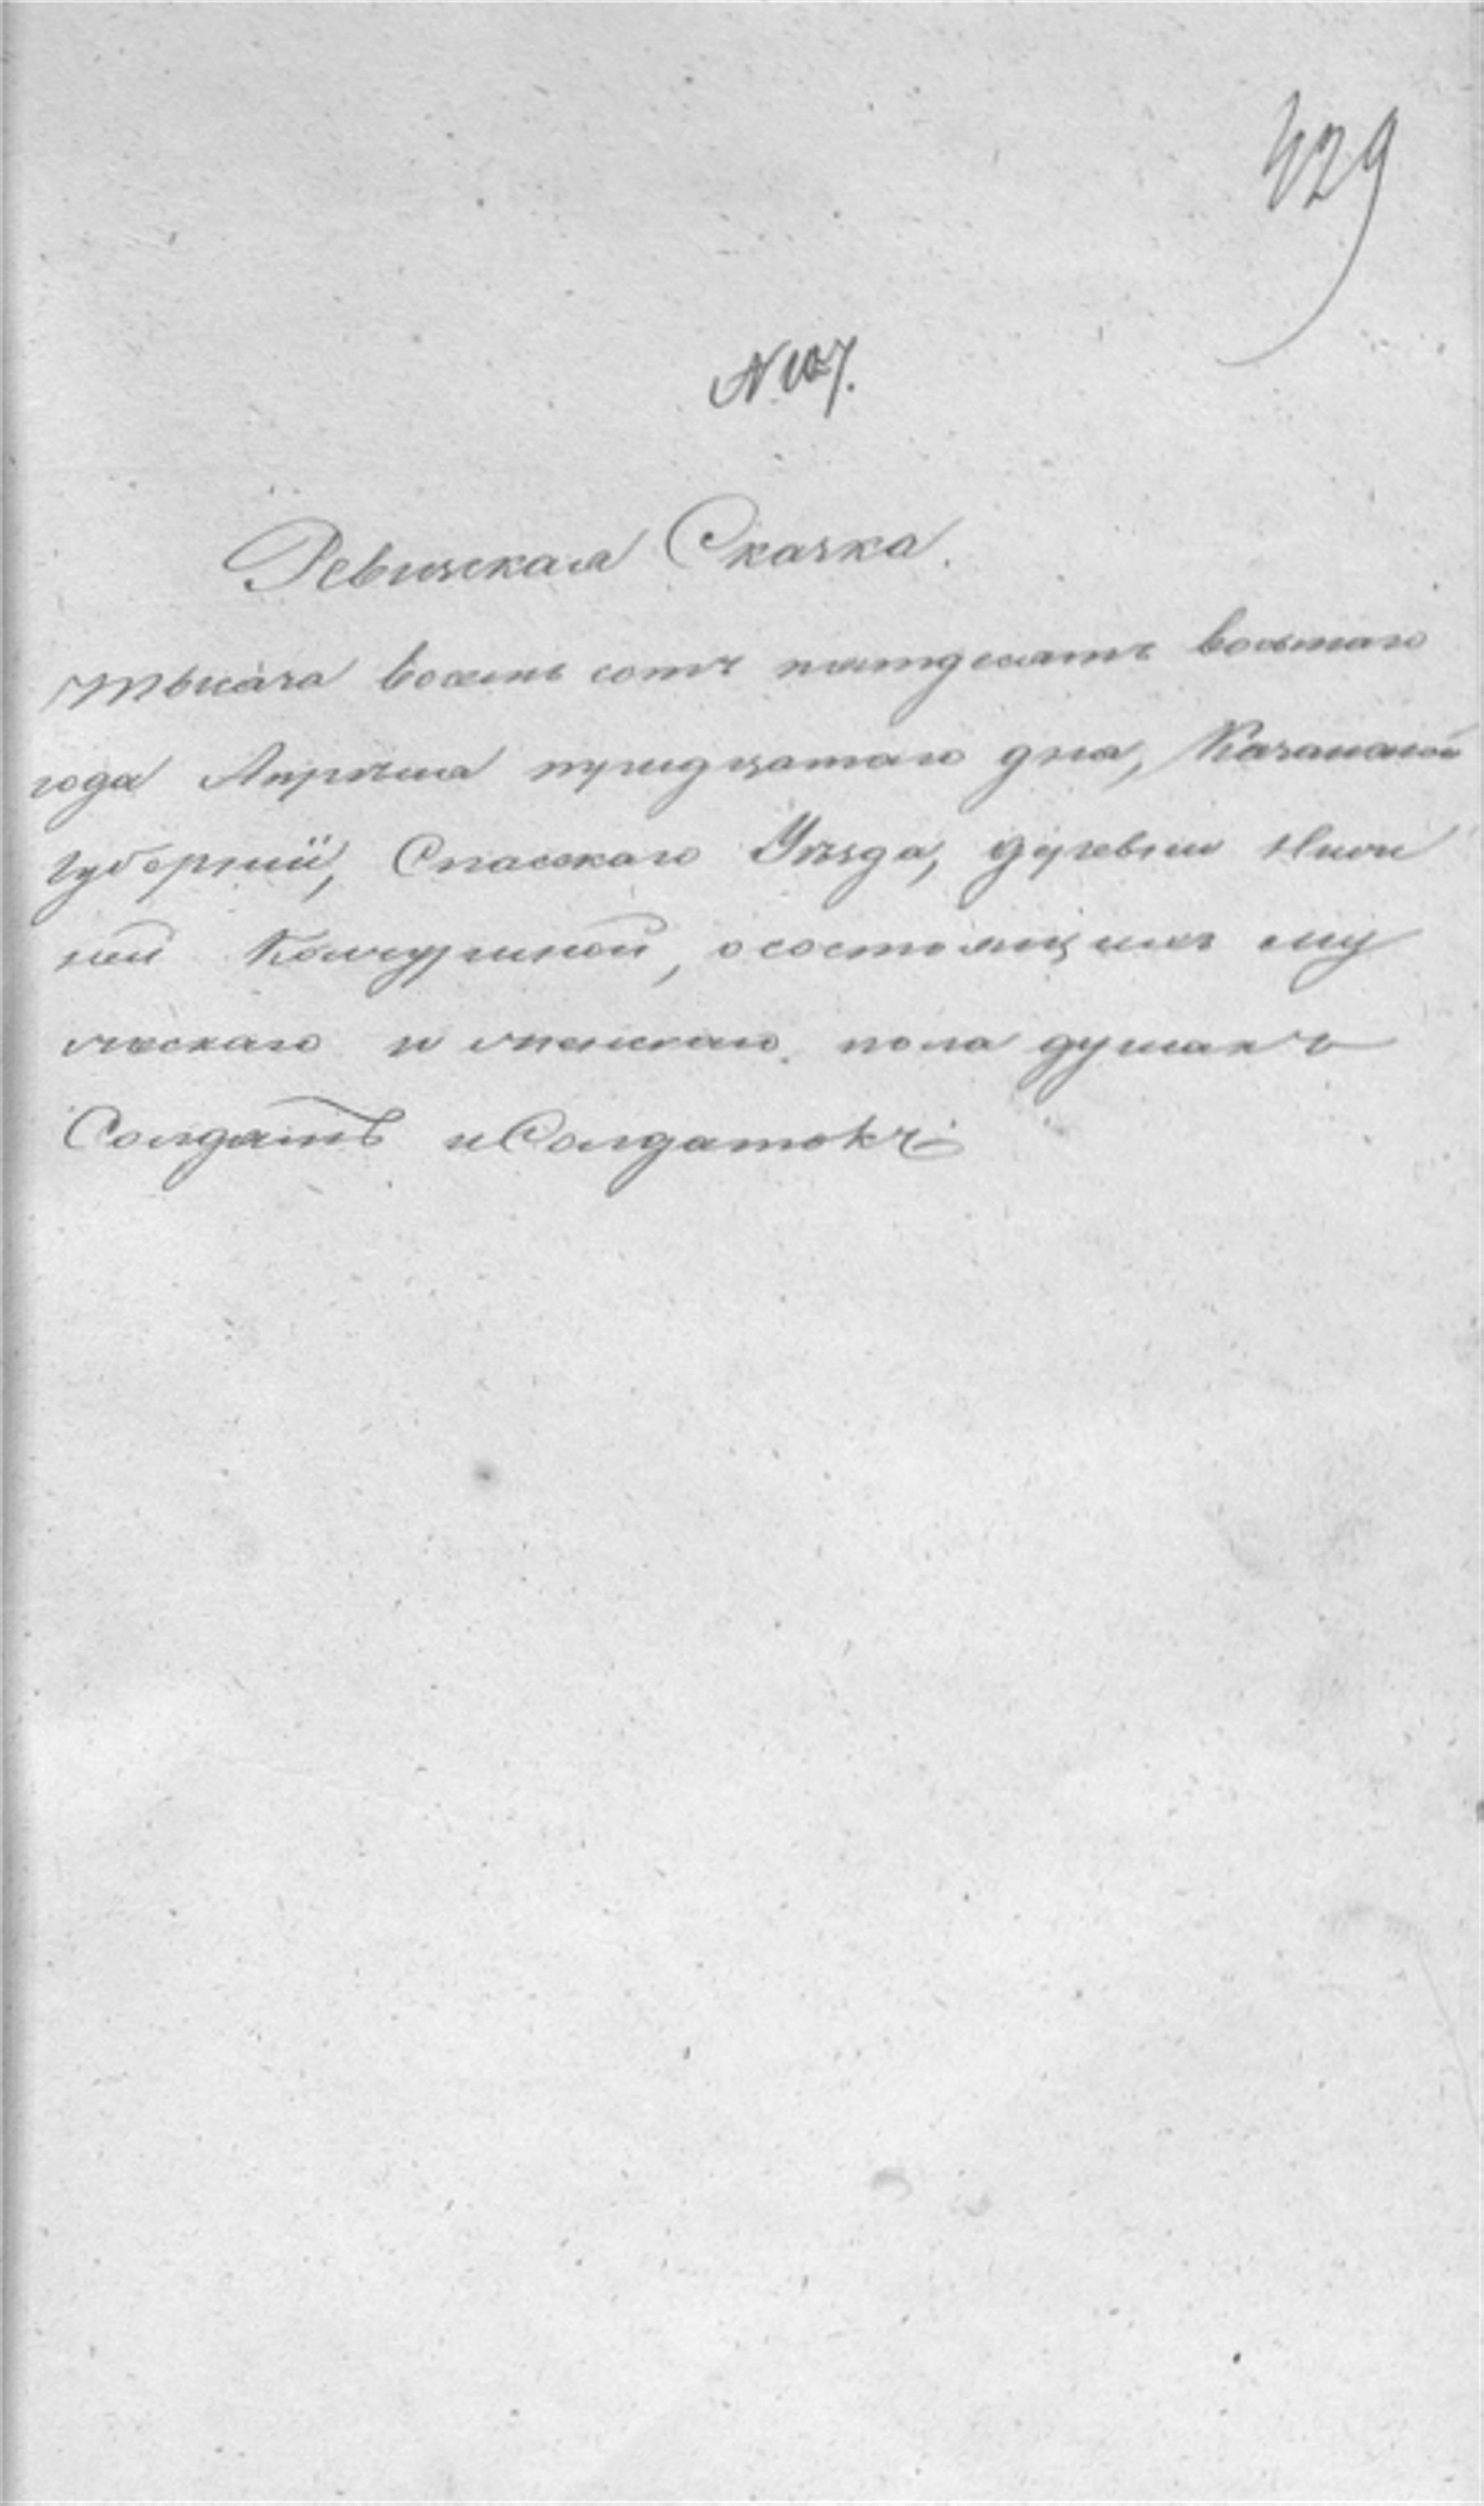 429
N 107.
Ревизская Сказка.
Тысяча восемь сотъ пятдесятъ восьмаго
года Апрѣля тридцатаго дня, Казанской
Губерніи, Спасскаго Уѣзда, деревни Ниж
ней Колчуриной, о состоящихъ му
жескаго и женскаго пола душахъ
Солдатъ и Солдатокъ